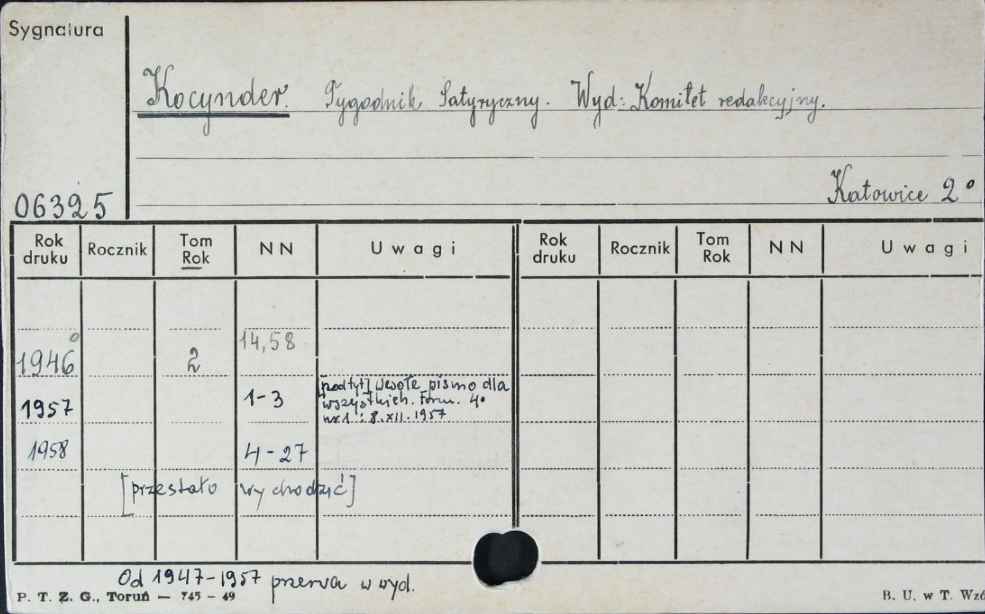 Sygnatura
Kocynder. Tygodnik Satyryczny. Wyd: Komitet redakcyjny.
06325
Katowice 2°
Rok druku Rocznik Tom Rok NN Uwagi Rok druku Rocznik Tom Rok NN Uwagi
1946° 2 14,58
1957 1-3 [podtyt] Wesołe pismo dla
wszystkich. Form. 4°
nr 1: 8.XII.1957
1958 4-27
[przestało wychodzić]
Od 1947-1957 przerwa w wyd.
P. T. Z. G., Toruń — 745 - 49
B. U. w T. Wzó